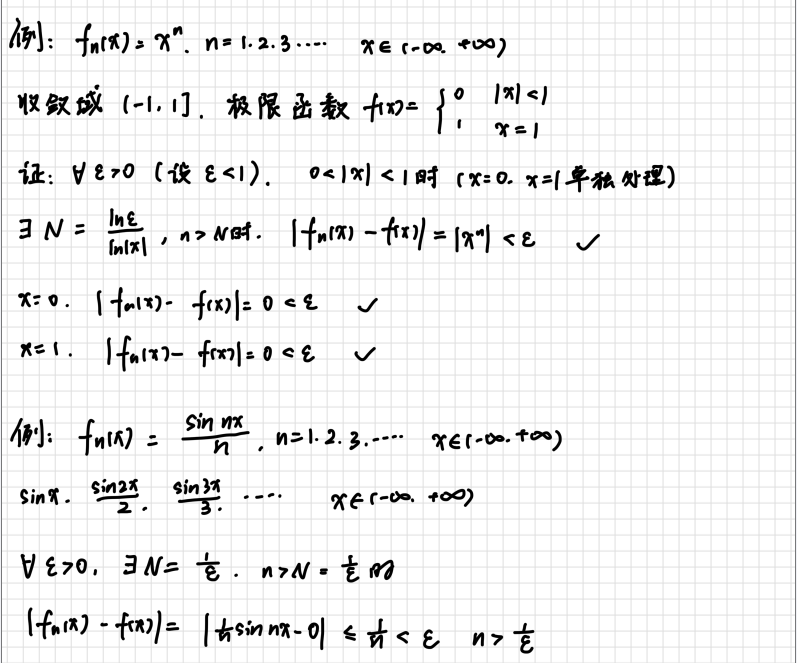 例: fₙ(x) = xⁿ. n = 1.2.3.···· x∈(-∞. +∞)
收敛域 (-1, 1]. 极限函数 f(x) = { 0 |x|<1
1 x=1
证: ∀ε>0 (设 ε<1). 0<|x|<1时 (x=0. x=1单独处理)
∃ N = lnε/ln|x| , n>N时. |fₙ(x) - f(x)| = |xⁿ| < ε ✓
x=0. |fₙ(x) - f(x)| = 0 < ε ✓
x=1. |fₙ(x) - f(x)| = 0 < ε ✓
例: fₙ(x) = sin nx/n , n=1.2.3.···· x∈(-∞.+∞)
sinx. sin2x/2. sin3x/3. ···· x∈(-∞. +∞)
∀ε>0, ∃N = 1/ε. n>N = 1/ε 时
|fₙ(x) - f(x)| = |1/n sin nx - 0| ≤ 1/n < ε n > 1/ε